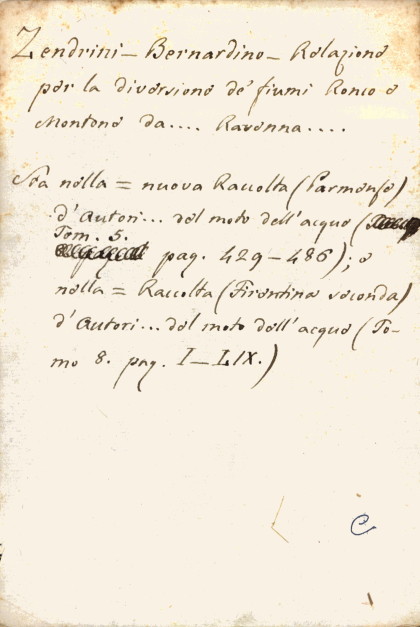 Zendrini – Bernardino – Relazione
per la diversione de' fiumi Ronco e
Montone da.... Ravenna....
Sta nella = nuova Raccolta (Parmense)
d'Autori... del moto dell'acque (
Tom. 5.
pag. 429–486); e
nella = Raccolta (Fiorentina seconda)
d'Autori... del moto dell'acque (To-
mo 8. pag. I–LIX.)
C